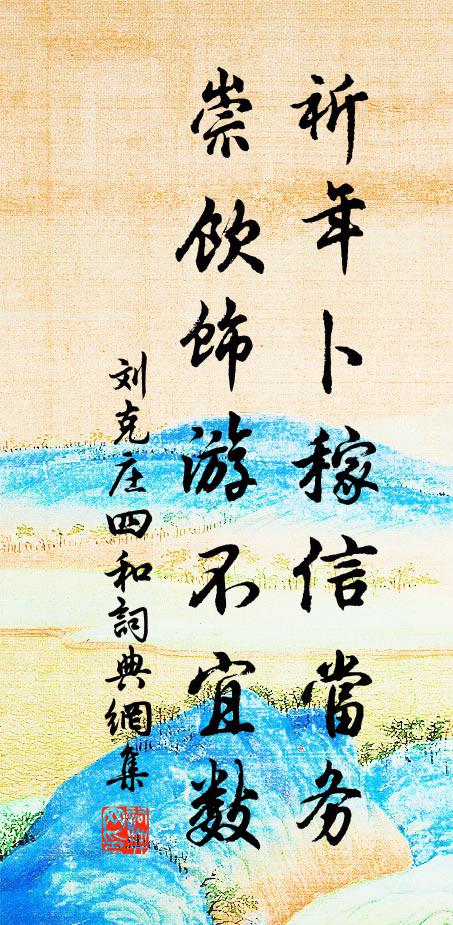 祈年卜稼信當务
崇飲飾游不宜数
刘克庄四和詞典網集